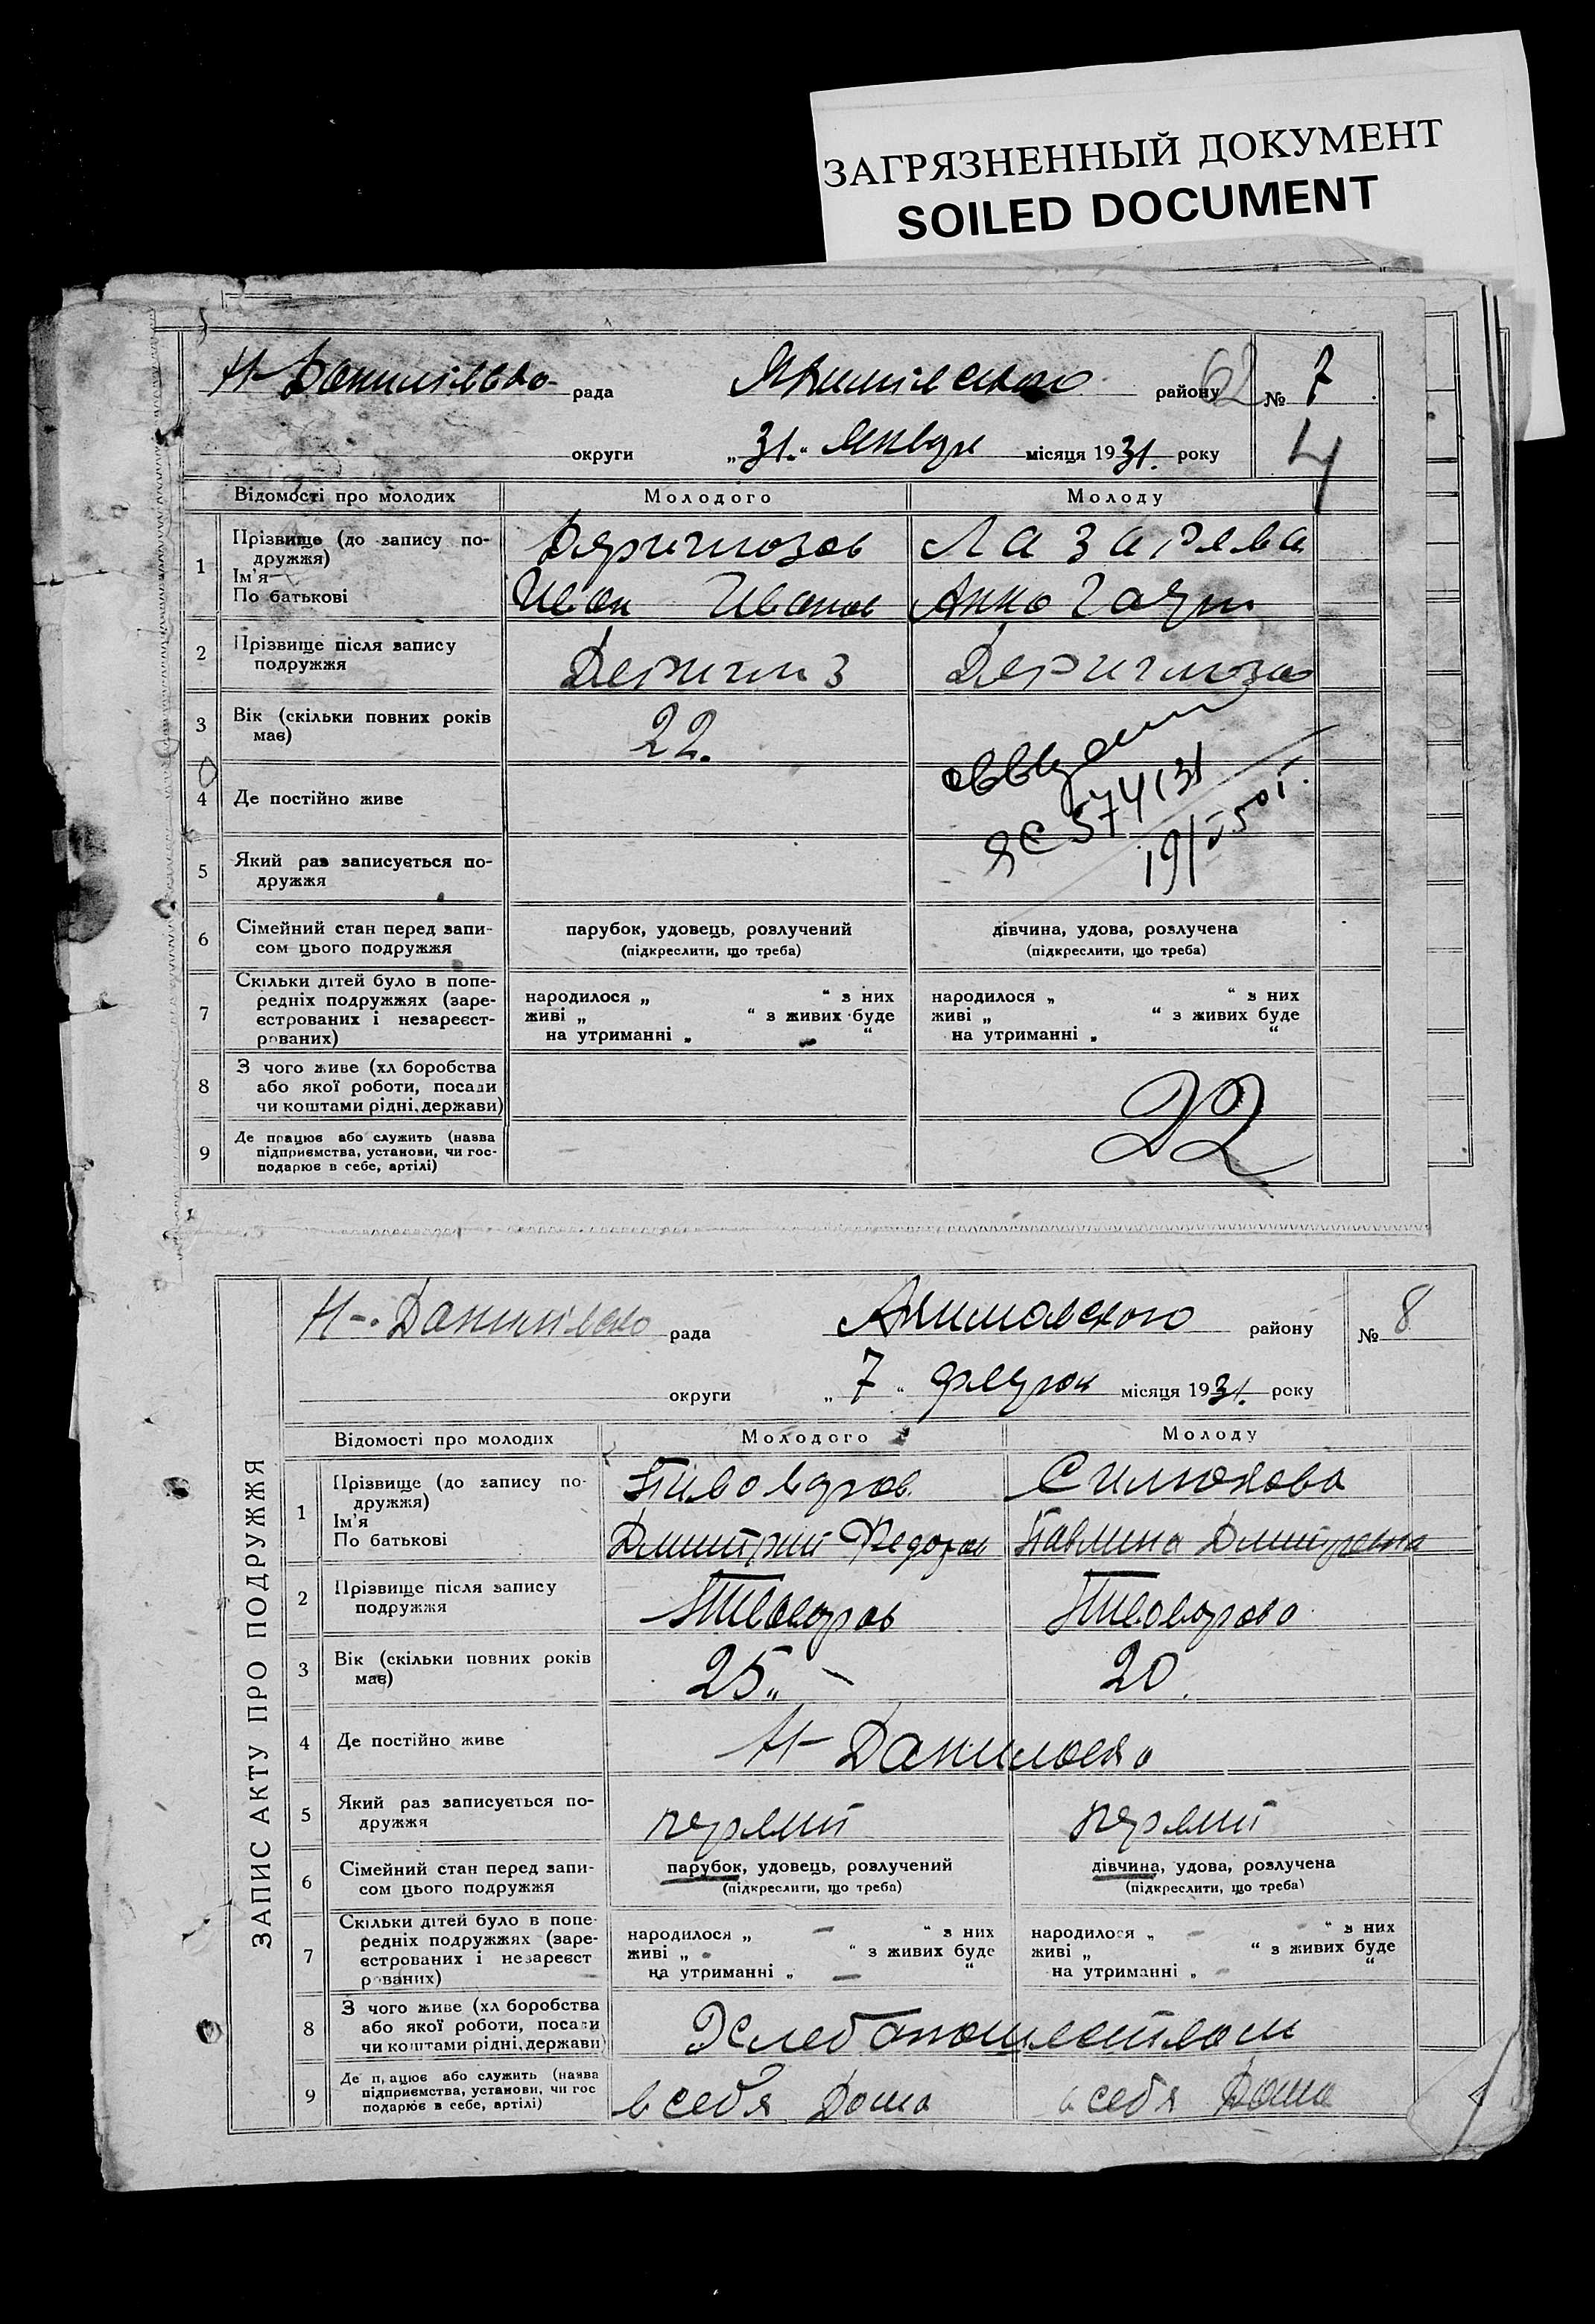 ЗАГРЯЗНЕННЫЙ ДОКУМЕНТ
SOILED DOCUMENT
Н-Данилівська рада района 62 № 7
округи „31.“ Января місяця 1931. року 4
Відомості про молодих Молодого Молоду
1 Прізвище (до запису подружжя) Лазарева
Ім'я
По батькові Иван Иванов Анна
2 Прізвище після запису
подружжя
3 Вік (скільки повних років
має) 22.
4 Де постійно живе
5 Який раз записується по-
дружжя
6 Сімейний стан перед запи-
сом цього подружжя
парубок, удовець, розлучений
(підкреслити, що треба)
дівчина, удова, розлучена
(підкреслити, що треба)
7 Скільки дітей було в попе-
редніх подружжях (заре-
єстрованих і незареєст-
рованих)
народилося „ “ з них
живі „ “ з живих буде
на утриманні „ “
народилося „ “ з них
живі „ “ з живих буде
на утриманні „ “
8 З чого живе (хлiборобства
або якої роботи, посади
чи коштами рідні, держави)
9 Де працює або служить (назва
підприємства, установи, чи гос-
подарює в себе, артілі)
22
ЗАПИС АКТУ ПРО ПОДРУЖЖЯ
Н-Данилівська рада Акимовского району № 8
округи „7“ місяця 1931. року
Відомості про молодих Молодого Молоду
1 Прізвище (до запису по-
дружжя) Пивоваров Силюкова
Ім'я
По батькові Дмитрий Федоров Павлина Дмитровна
2 Прізвище після запису
подружжя Пивоваров Пивоварова
3 Вік (скільки повних років
має) 25 20
4 Де постійно живе Н-Даниловка
5 Який раз записується по-
дружжя первый первый
6 Сімейний стан перед запи-
сом цього подружжя
парубок, удовець, розлучений
(підкреслити, що треба)
дівчина, удова, розлучена
(підкреслити, що треба)
7 Скільки дітей було в попе-
редніх подружжях (заре-
єстрованих і незареєст
рованих)
народилося „ – “ з них
живі „ - “ з живих буде
на утриманні „ – “
народилося „ - “ з них
живі „ “ з живих буде
на утриманні „ - “
8 З чого живе (хлiборобства
або якої роботи, посади
чи коштами рідні, держави) Хлебопашеством
9 Де працює або служить (назва
підприємства, установи, чи гос
подарює в себе, артілі) в себя дома в себя дома